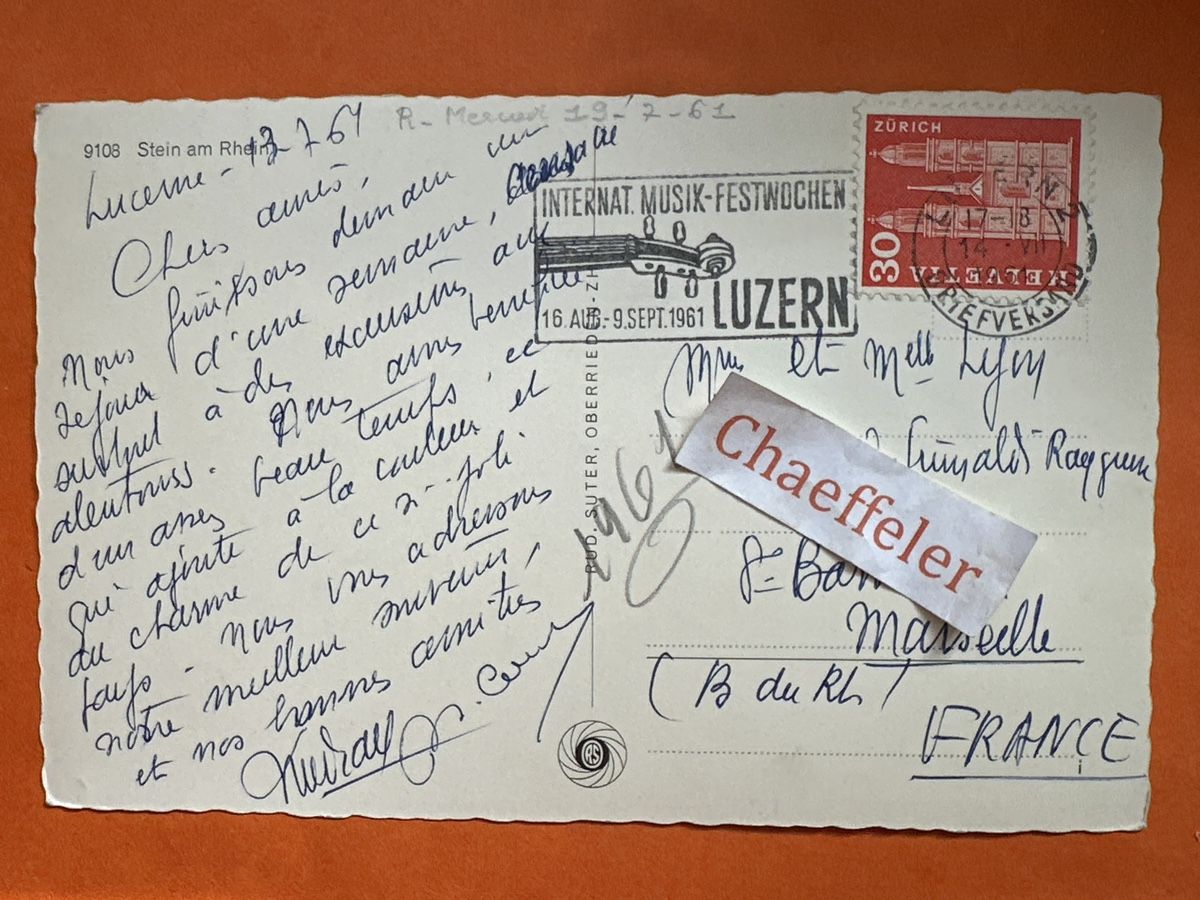 R- 19-7-61
9108 Stein am Rhein
Lucerne - 13-7-61
Chers amis,
Nous finissons demain un
séjour d'une semaine,
surtout à des excursions aux
alentours. Nous avons bénéficié
d'un assez beau temps, ce
qui ajoute à la couleur et
au charme de ce si joli
pays - nous vous adressons
notre meilleur souvenir,
et nos bonnes amitiés
INTERNAT. MUSIK-FESTWOCHEN
16. AUG.-9. SEPT. 1961 LUZERN
ZÜRICH
30
HELVETIA
LUZERN 2
17-18
14 VII
1961
BRIEFVERSAND
RUD. SUTER, OBERRIEDEN-ZH
1961
Mme et Melle Lyon
Grimaldi
Chaeffeler
St Bar
Marseille
(B du Rh)
FRANCE
RS